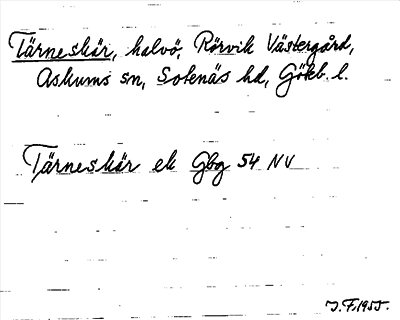 Tärneskär, halvö, Rörvik Västergård,
Askums sn, Sotenäs hd, Göteb. l.
Tärneskär ek Gbg 54 NV
J.F. 1955.